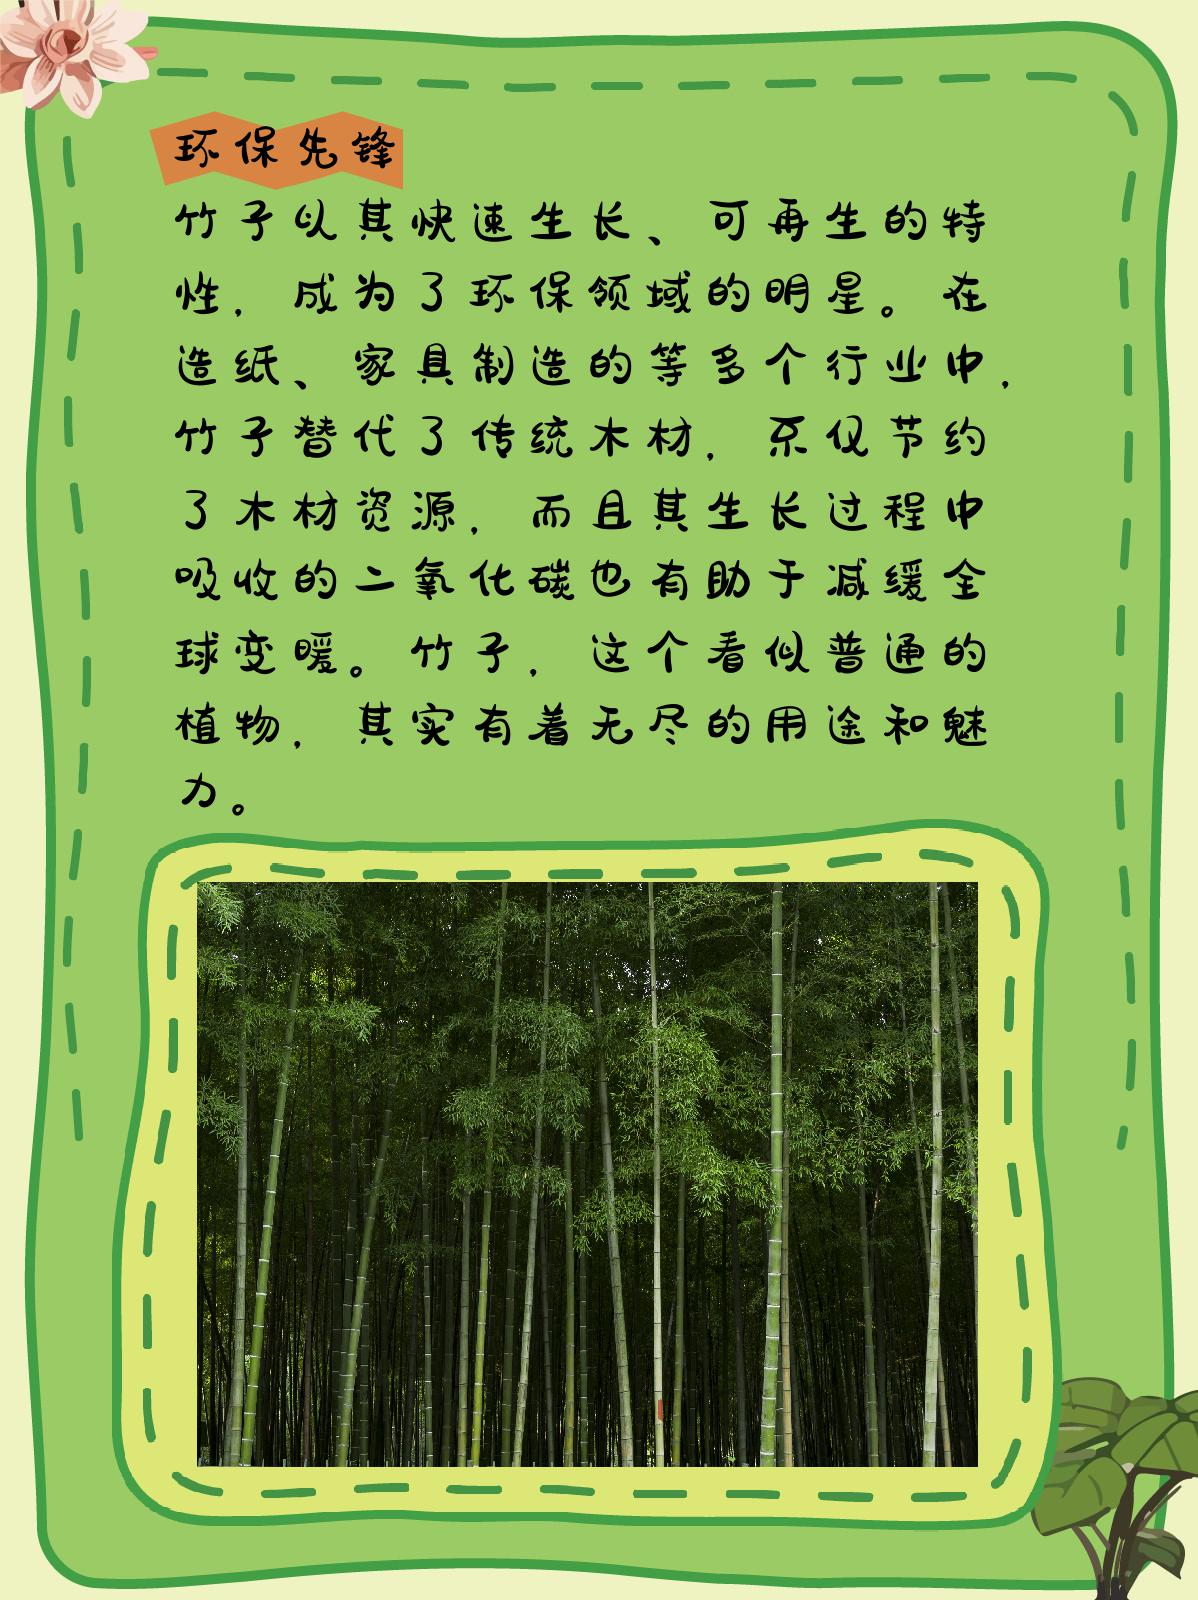 环保先锋
竹子以其快速生长、可再生的特
性，成为了环保领域的明星。在
造纸、家具制造的等多个行业中，
竹子替代了传统木材，不仅节约
了木材资源，而且其生长过程中
吸收的二氧化碳也有助于减缓全
球变暖。竹子，这个看似普通的
植物，其实有着无尽的用途和魅
力。